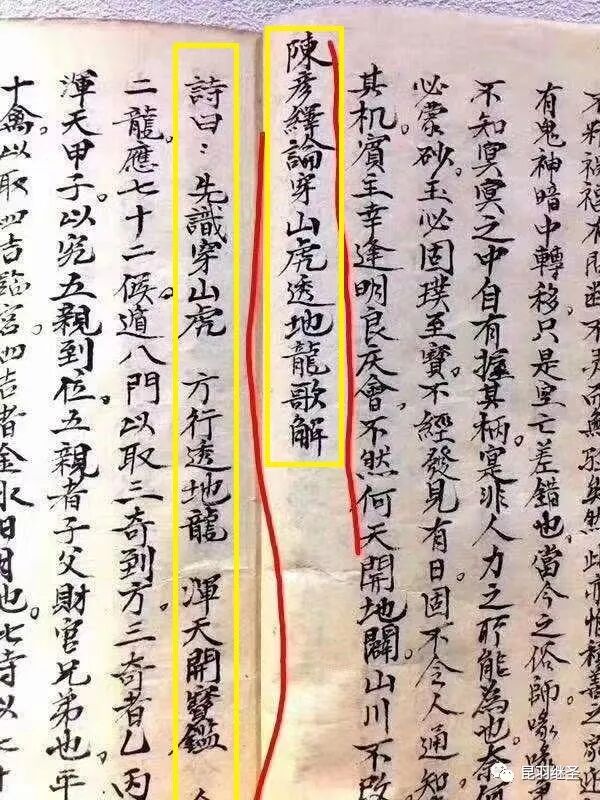 此亦惟積善之家近
有鬼神暗中轉移只是空亡差錯也。當今之俗師
不知冥冥之中自有握其柄。寔非人力之所能為也奈何
必蒙砂。玉必固璞至寶。不經發見有日固不令人通知
其机。賓主幸逢明良庆會。不然何天開地闢。山川不改
陳彥繹論穿山虎透地龍歌解
詩曰：先識穿山虎 方行透地龍 渾天開寶鑑
二龍應七十二候。道八門以取三奇到方。三奇者乙丙
渾天甲子以究五親到位。五親者子父財官兄弟也。年
十禽。以取四吉臨宮四吉者金水日月也。七寺以七十
昆羽继圣